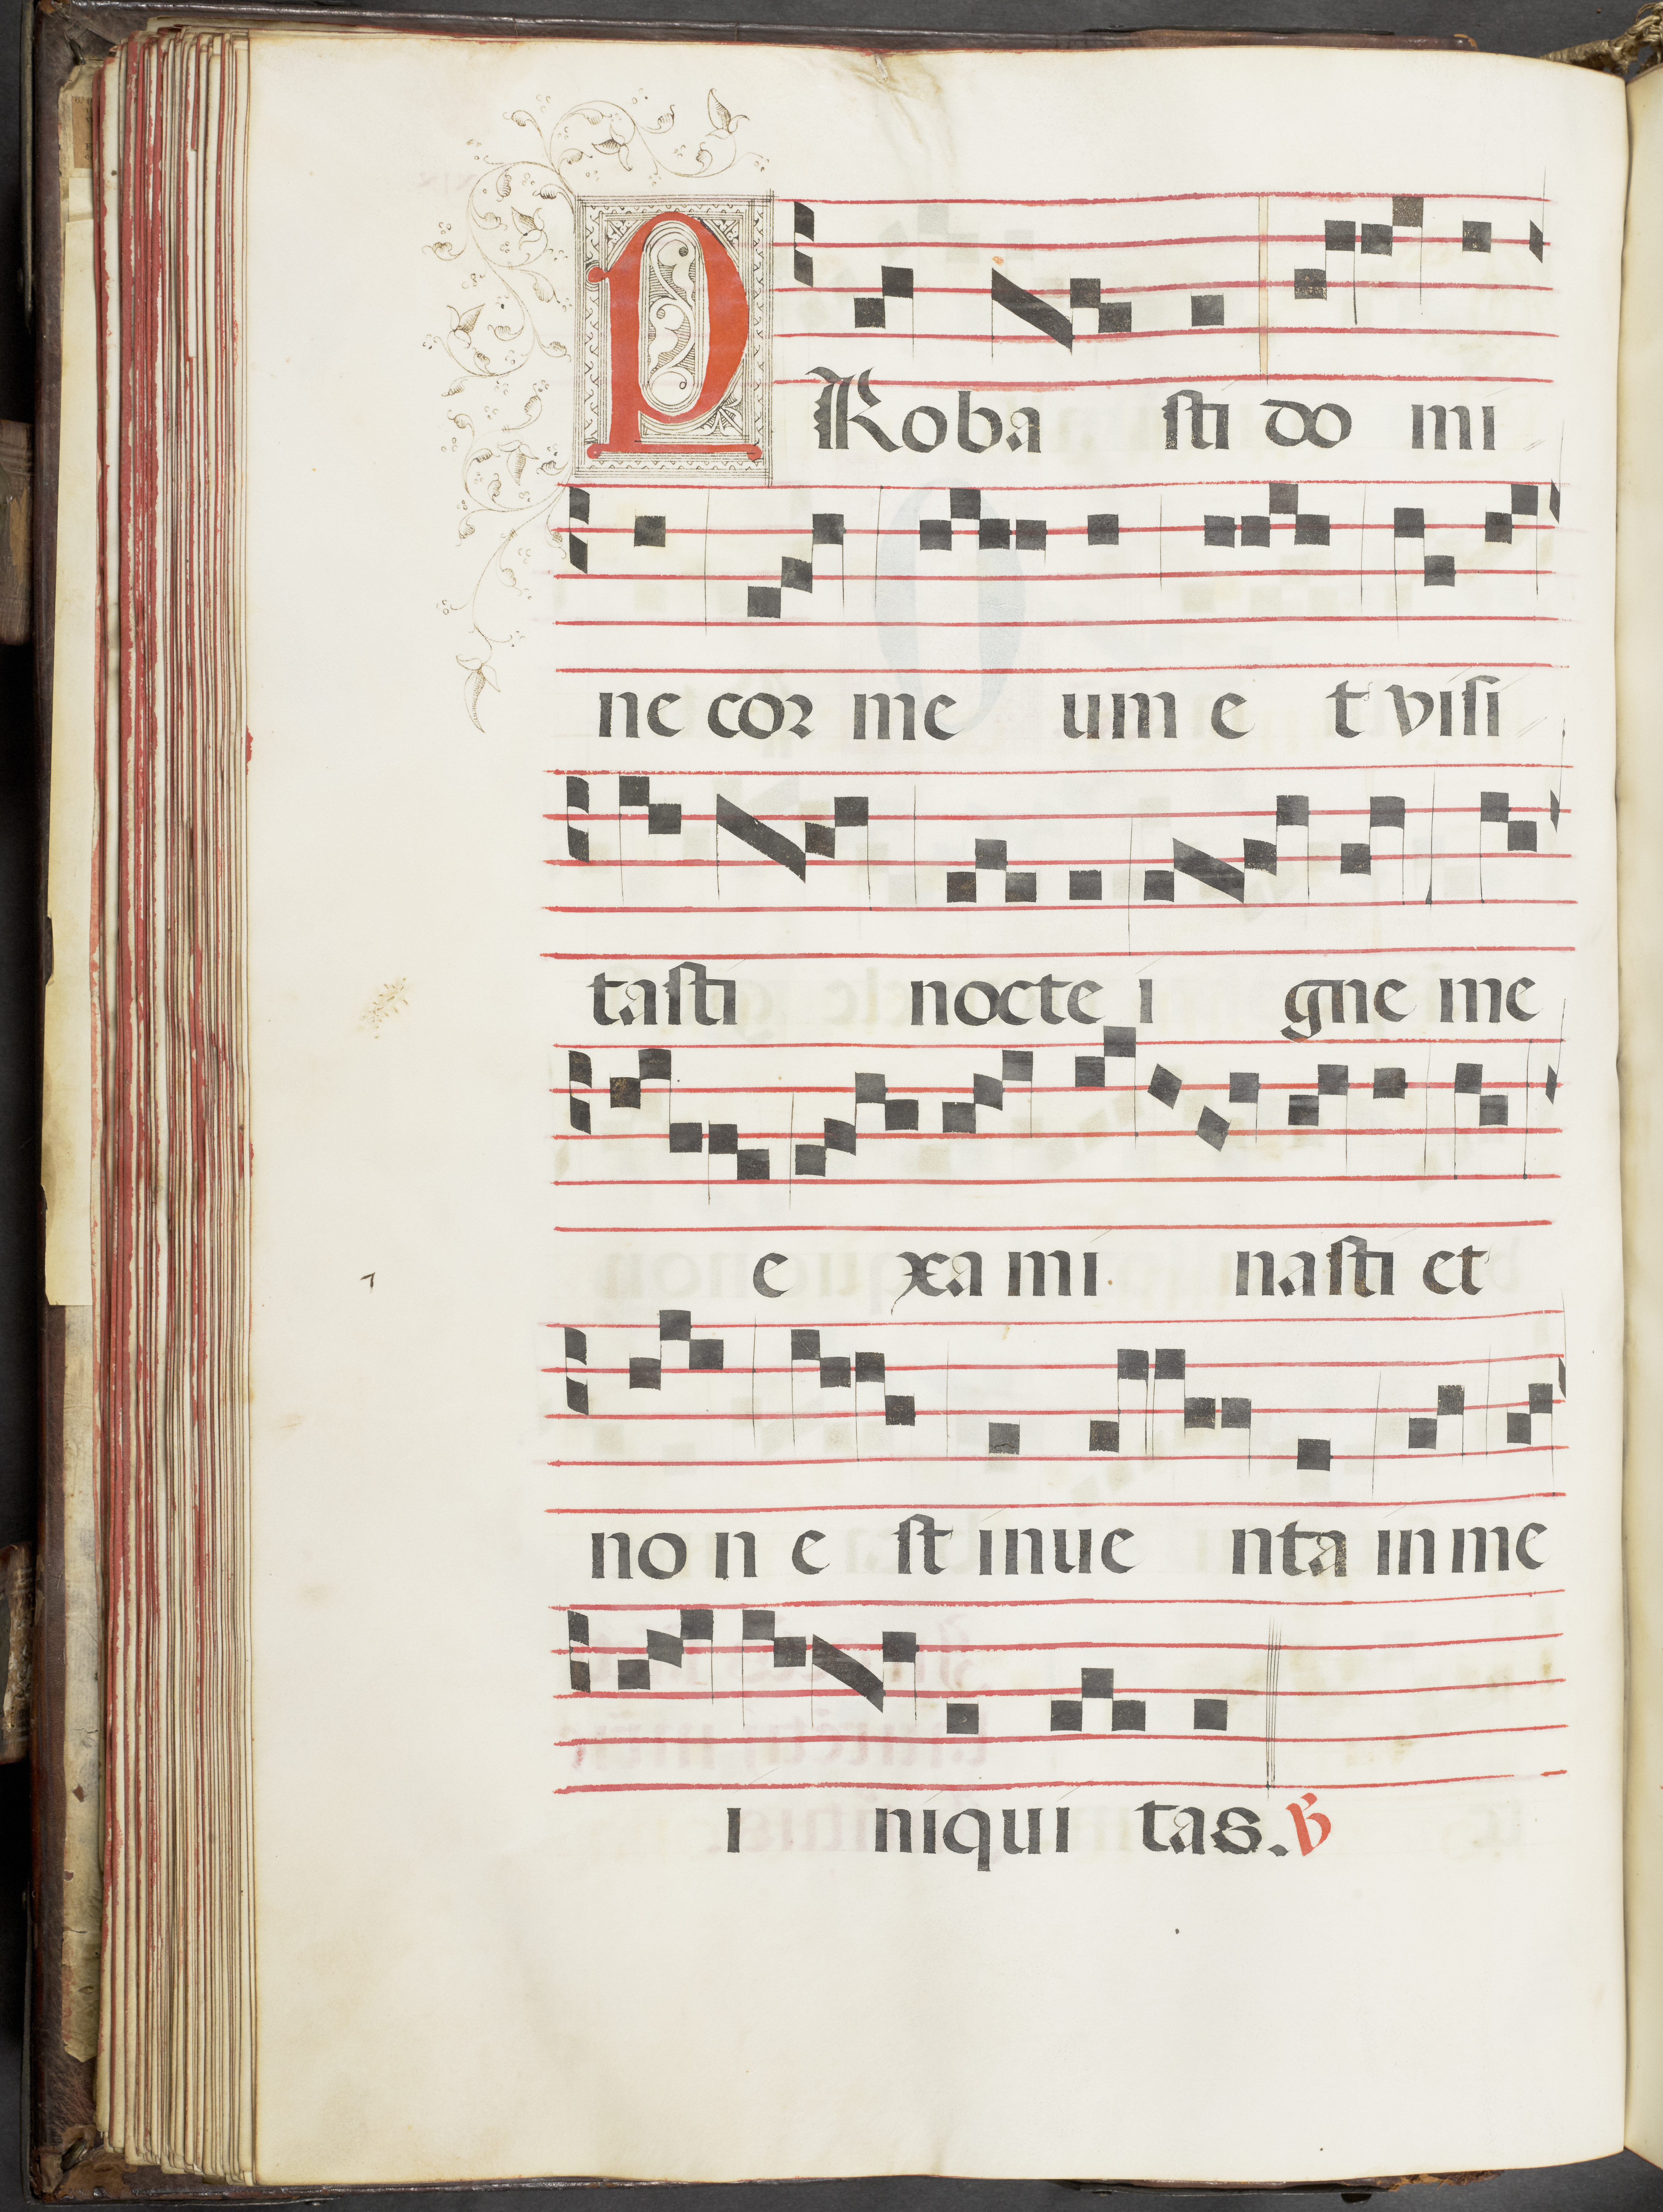 PRoba sti do mi
ne cor me um e t visi
tasti nocte i gne me
e xa mi nasti et
no n e st inue nta in me
i niqui tas. ℣